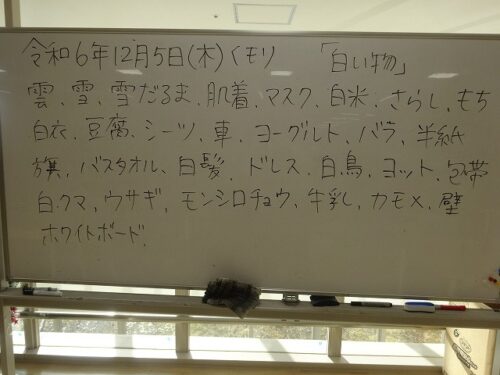 令和6年12月5日(木)くモリ 「白い物」
雲、雪、雪だるま、肌着、マスク、白米、さらし、もち
白衣、豆腐、シーツ、車、ヨーグルト、バラ、半紙
旗、バスタオル、白髪、ドレス、白鳥、ヨット、包帯
白クマ、ウサギ、モンシロチョウ、牛乳、カモメ、壁
ホワイトボード、